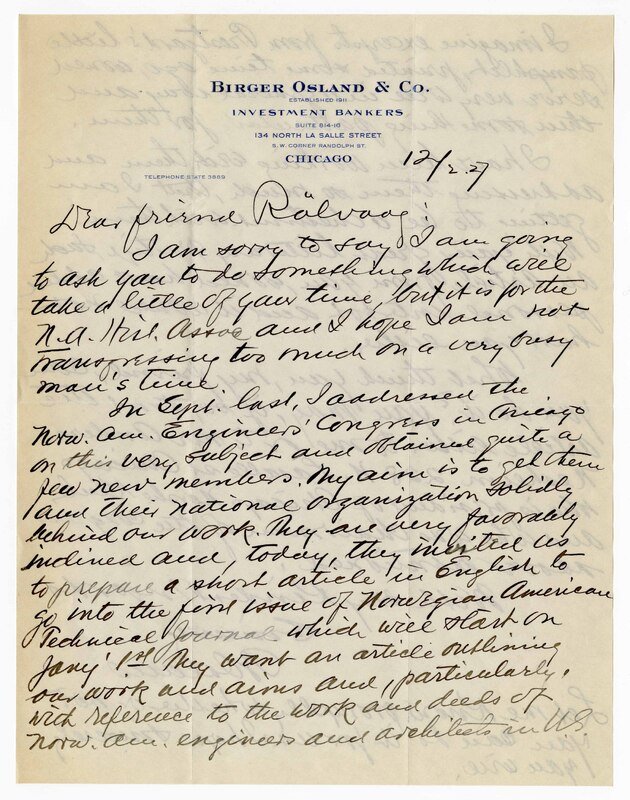 BIRGER OSLAND & CO.
ESTABLISHED 1911
INVESTMENT BANKERS
SUITE 814-16
134 NORTH LA SALLE STREET
S. W. CORNER RANDOLPH ST.
CHICAGO
TELEPHONE STATE 3889
12/2.27
Dear friend Rölvaag:
I am sorry to say I am going
to ask you to do something which will
take a little of your time, but it is for the
N.A. Hist. Assoc and I hope I am not
transgressing too much on a very busy
man's time.
In Sept. last, I addressed the
Norw. Am. Engineers' Congress in Chicago
on this very subject and obtained quite a
few new members. My aim is to get them
and their national organization solidly
behind our work. They are very favorably
inclined and, today, they invited us
to prepare a short article in English to
go into the first issue of Norwegian American
Technical Journal which will start on
Jany 1st They want an article outlining
our work and aims and, particularly,
with reference to the work and deeds of
norw. am. engineers and architects in U.S.